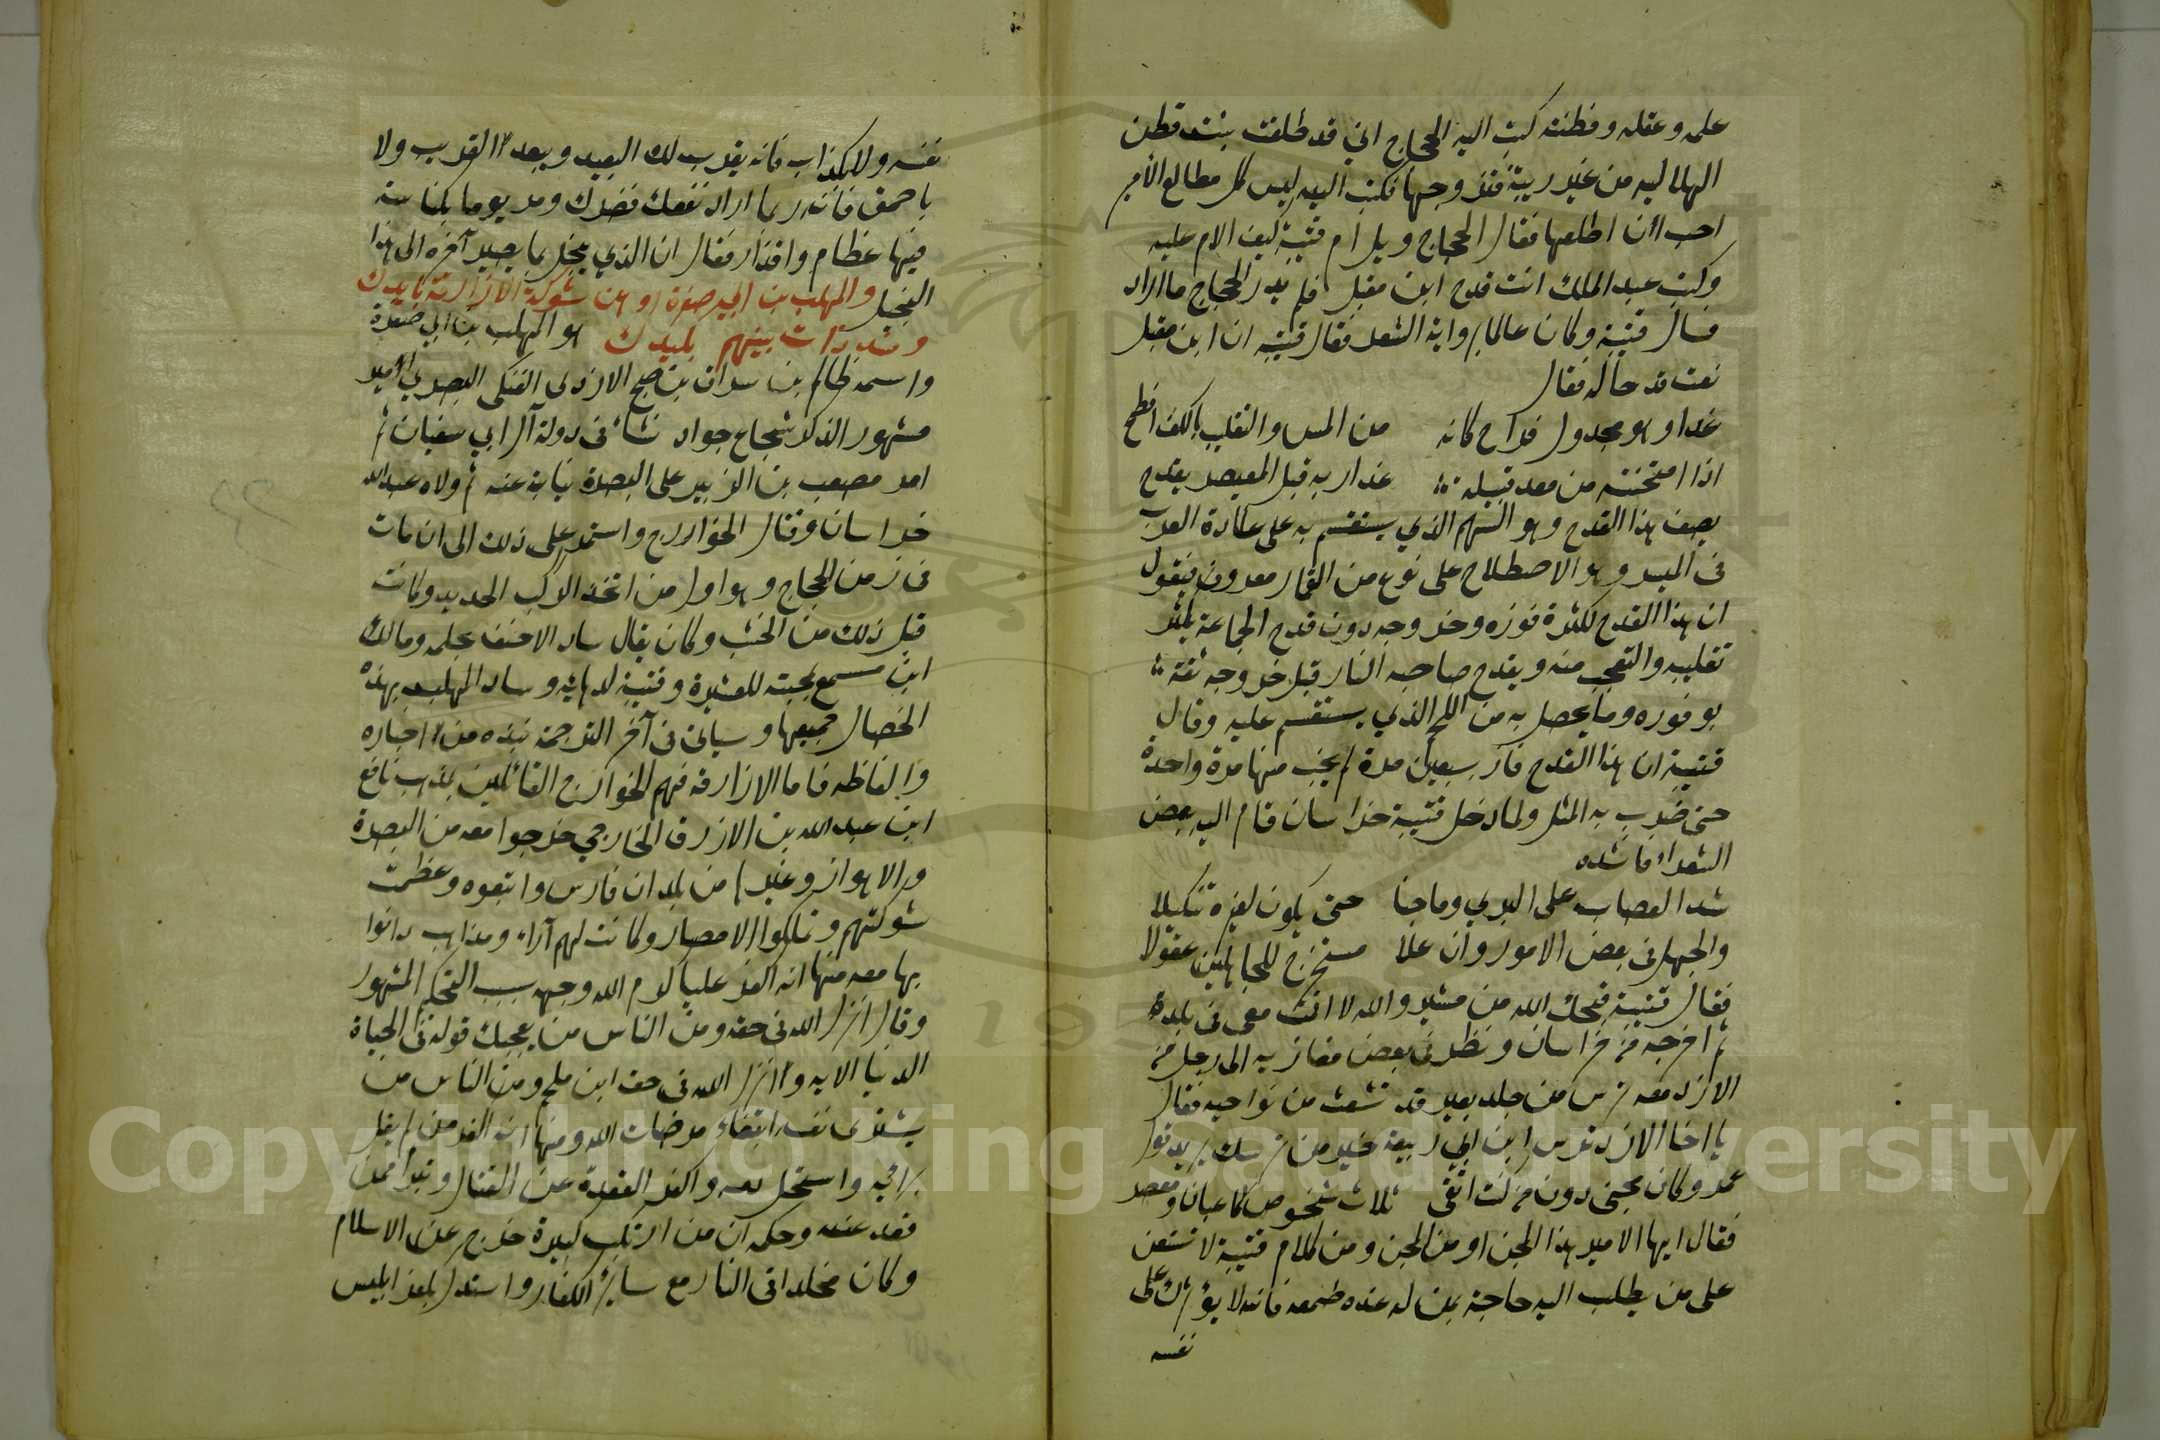 علمه وعقله وفطنته كتب اليه الحجاج اني قد طلقت بنت قطن
الهلاليه من غير ريبة فتزوجها فكتب اليه ليس كل مطالع الامر
احب ان اطلعها فقال الحجاج ويل ام قتيبة ليف الام عليه
وكتب عبد الملك انت قدح ابن مقبل فلم يدر الحجاج ما اراد
فسال قتيبة وكان عالما برواية الشعر فقال قتيبة ان ابن مقبل
نعت قدحا له فقال
غدا وهو مجدول فراح كانه من المس والتقليب بالكف افطح
اذا امتحنته من معد قبيلة غدا ربه قبل المفيضين يقدح
يصف هذا القدح وهو السهم الذي يستقسم به على عادة العرب
في الميسر وهو الاصطلاح على نوع من القمار معروف فيقول
ان هذا القدح لكثرة فوزه وخروجه دون قدح الجماعة يكثر
تقليبه والتعجب منه ويقدح صاحبه النار قبل خروجه ثقة
بوفوره وما يحصل به من اللحم الذي يستقسم عليه وقال
قتيبة ان هذا القدح فاز سبعين مرة لم يخب منها مرة واحدة
حتى ضرب به المثل ولما دخل قتيبة خراسان قام اليه بعض
الشعراء فانشده
شد العصاب على البري وما جنا حتى يكون لغيره تنكيلا
والجهل في بعض الامور وان علا مستخرج للجاهلين عقولا
فقال قتيبة قبحك الله من مشير والله لا انت معي في بلدة
ثم اخرجه من خراسان ونظر في بعض مغازيه الى رجل من
الازد معه ترس من جلد بعير قد تشعث من نواحيه فقال
يا اخا الازد ترس ابن ابي ربيعة خير من ترسك يريد قول
عمر وكان مجني دون من كنت اتقي ثلاث شخوص كاعبان ومعصر
فقال ايها الامير هذا المجن او من المجن ومن كلام قتيبة لا تستعن
على من يطلب اليه حاجة بمن له عنده طمعه فانه لا يؤثرك على
نفسه
نفسه ولا كذاب فانه يقرب لك البعيد ويبعد القريب ولا
باحمق فانه ربما اراد نفعك فضرك ومر يوما بكناسة
فيها عظام واقذار فقال ان الذي يبخل بما يصير آخره الى هذا
البخيل والمهلب بن ابي صفرة اوهن شوكة الازارقة بايدك
وشتت ذات بينهم بكيدك هو المهلب بن ابي صفرة
واسمه ظالم بن سراق بن صبح الازدي العتكي البصري امير
مشهور الذكر شجاع جواد نشأ في دولة آل ابي سفيان ثم
امر مصعب بن الزبير على البصرة نيابة عنه ثم ولاه عبد الله
خراسان وقتال الخوارج واستمر على ذلك الى ان مات
في زمن الحجاج وهو اول من اتخذ الركب الحديد وكانت
قبل ذلك من الخشب وكان يقال ساد الاحنف بحلمه ومالك
ابن مسمع بمحبته للعشيرة وقتيبة لدهائه وساد المهلب بهذه
الخصال جميعها وسياتي في آخر الترجمة نبذه من اخباره
والفاظه فاما الازارقة فهم الخوارج القائلين بمذهب نافع
ابن عبد الله بن الازرق الخارجي خرجوا معه من البصرة
والاهواز وغيرها من بلدان فارس واتبعوه وعظمت
شوكتهم وتملكوا الامصار وكانت لهم آراء ومذاهب دانوا
بها معه منها انه اكفر عليا كرم الله وجهه بسبب التحكيم المشهور
وقال انزل الله في حقه ومن الناس من يعجبك قوله في الحياة
الدنيا الايه وانزل الله في حق ابن ملجم ومن الناس من
يشتري نفسه ابتغاء مرضات الله ومنها انه اكفر من لم يقل
برائيه واستحل دمه واكفر القعدة عن القتال وتبرأ ممن
قعد عنه وحكم ان من ارتكب كبيرة خرج عن الاسلام
وكان مخلدا في النار مع سائر الكفار واستدل بكفر ابليس
Copyright © King Saud University